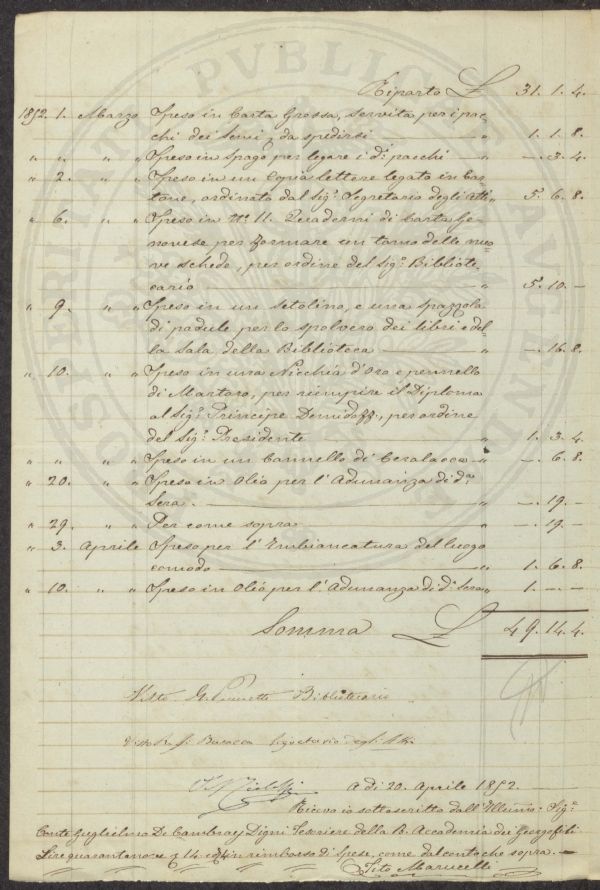 Riporto £ 31. 1. 4.
1852. 1. Marzo Speso in Carta Grossa, servita per i pac-
chi dei Semi, da spedirsi — " 1. 1. 8.
" " " " Speso in Spago per legare i d.i pacchi — " —. 3. 4.
" 2. " " Speso in un Copia lettere legato in Car-
tone, ordinato dal Sig.r Segretario degli Atti " 5. 6. 8.
" 6. " " Speso in N.o 11. Quaderni di Carta Ge-
novese per formare un tomo delle nuo-
ve schede, per ordine del Sig.r Bibliote-
cario — " 5. 10. —
" 9. " " Speso in un setolino, e una spazzola
di padule per lo spolvero dei libri e del-
la Sala della Biblioteca — " —. 16. 8.
" 10. " " Speso in una Nicchia d'Oro e pennello
di Martoro, per riempire il Diploma
al Sig.r Principe Demidoff, per ordine
del Sig.r Presidente " 1. 3. 4.
" " " " Speso in un Cannello di Ceralacca — " —. 6. 8.
" 20. " " Speso in Olio per l'Adunanza di d.a
Sera. — " —. 19. —
" 29. " " Per come sopra — " —. 19. —
" 3. Aprile Speso per l'Imbiancatura del luogo
comodo — " 1. 6. 8.
" 10. " " Speso in Olio per l'Adunanza di d.a Sera " 1. —. —
Somma £ 49. 14. 4.
Visto G. Bibliotecario
Visto Segretario degli Atti
A dì 20. Aprile 1852. —
Ricevo io sottoscritto dall'Illmo. Sig.r
Conte Guglielmo De Cambray Digni Tesoriere della R. Accademia dei Georgofili
Lire quarantanove e 14 e 4 in rimborso di Spese, come dal conto che sopra. —
Tito Marucelli